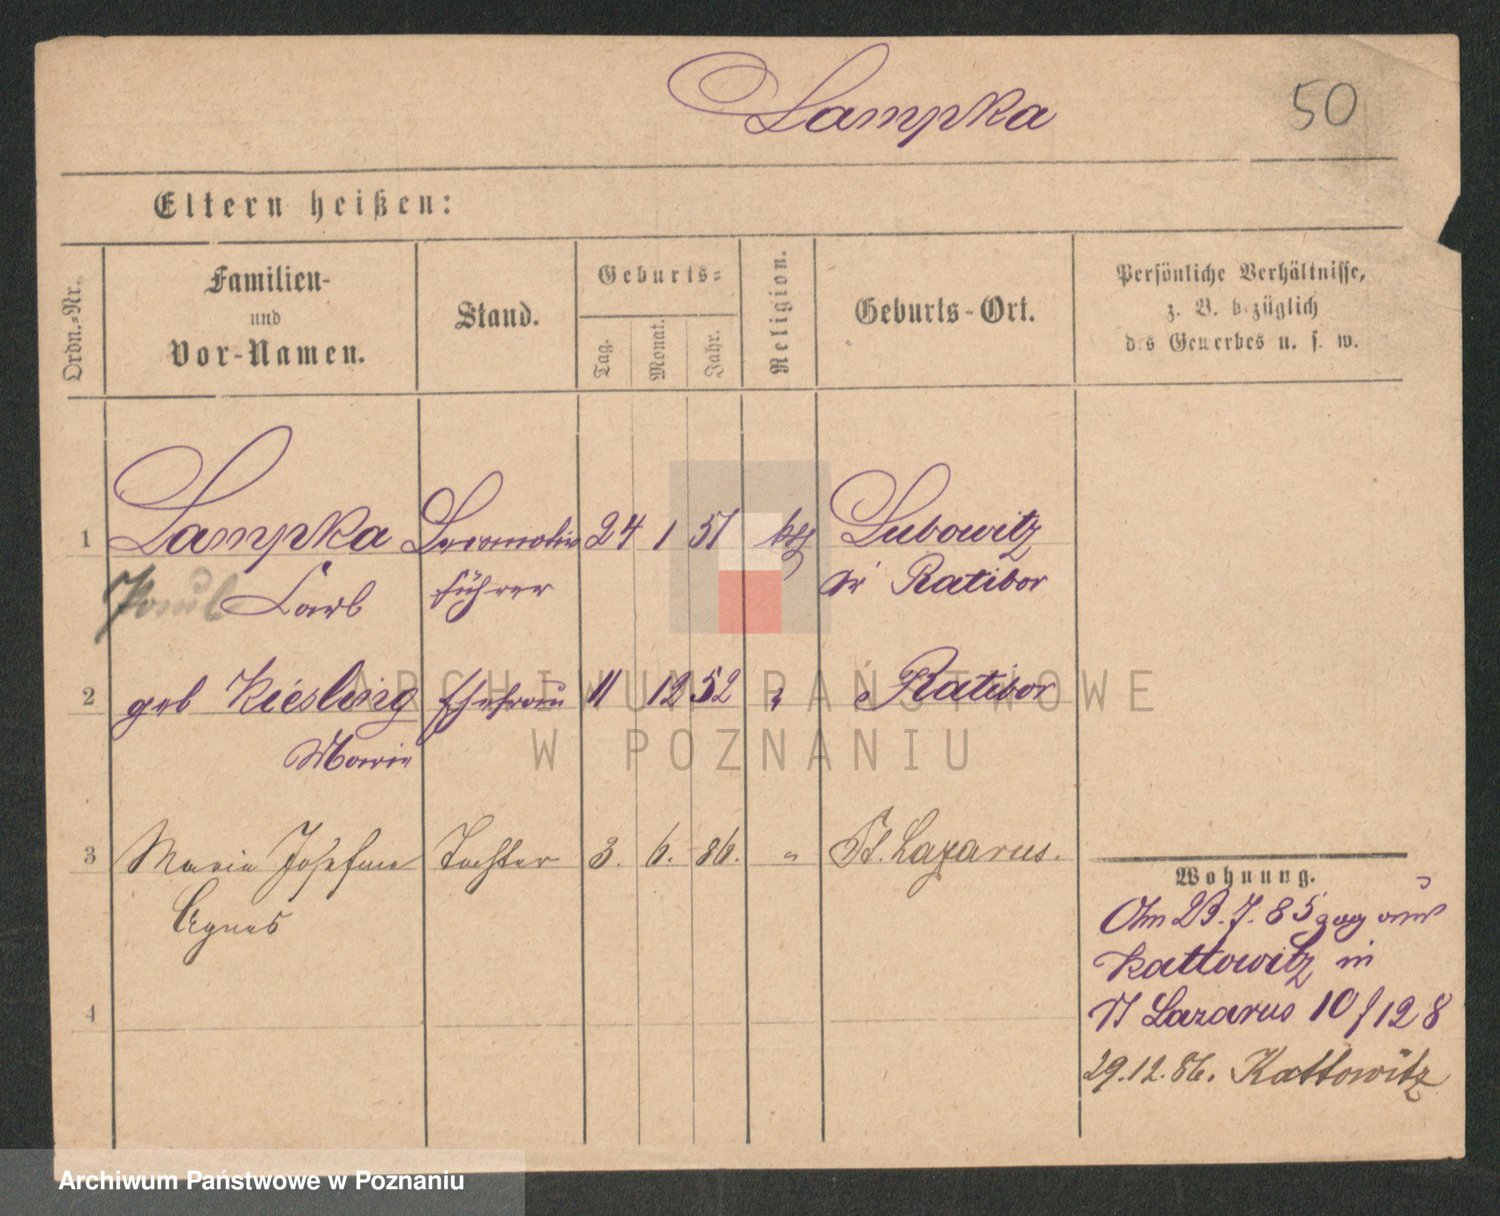 Lampka
50
Eltern heißen:
Ordn.-Nr.
Familien-
und
Vor-Namen.
Stand.
Geburts-
Tag.
Monat.
Jahr.
Religion.
Geburts-Ort.
Persönliche Verhältnisse,
z. B. bezüglich
des Gewerbes u. s. w.
1 Lampka Locomotiv 24 1 51 kth Lubowitz
Paul Carl führer Kr Ratibor
2 geb Kiesling Ehefrau 11 12 52 " Ratibor
Marie
3 Marie Josefine Tochter 3. 6. 86. " St. Lazarus.
Agnes
4
Wohnung.
Am 23.7.85 zog aus
Kattowitz in
St Lazarus 10/128
29.12.86. Kattowitz
ARCHIWUM PAŃSTWOWE
W POZNANIU
Archiwum Państwowe w Poznaniu